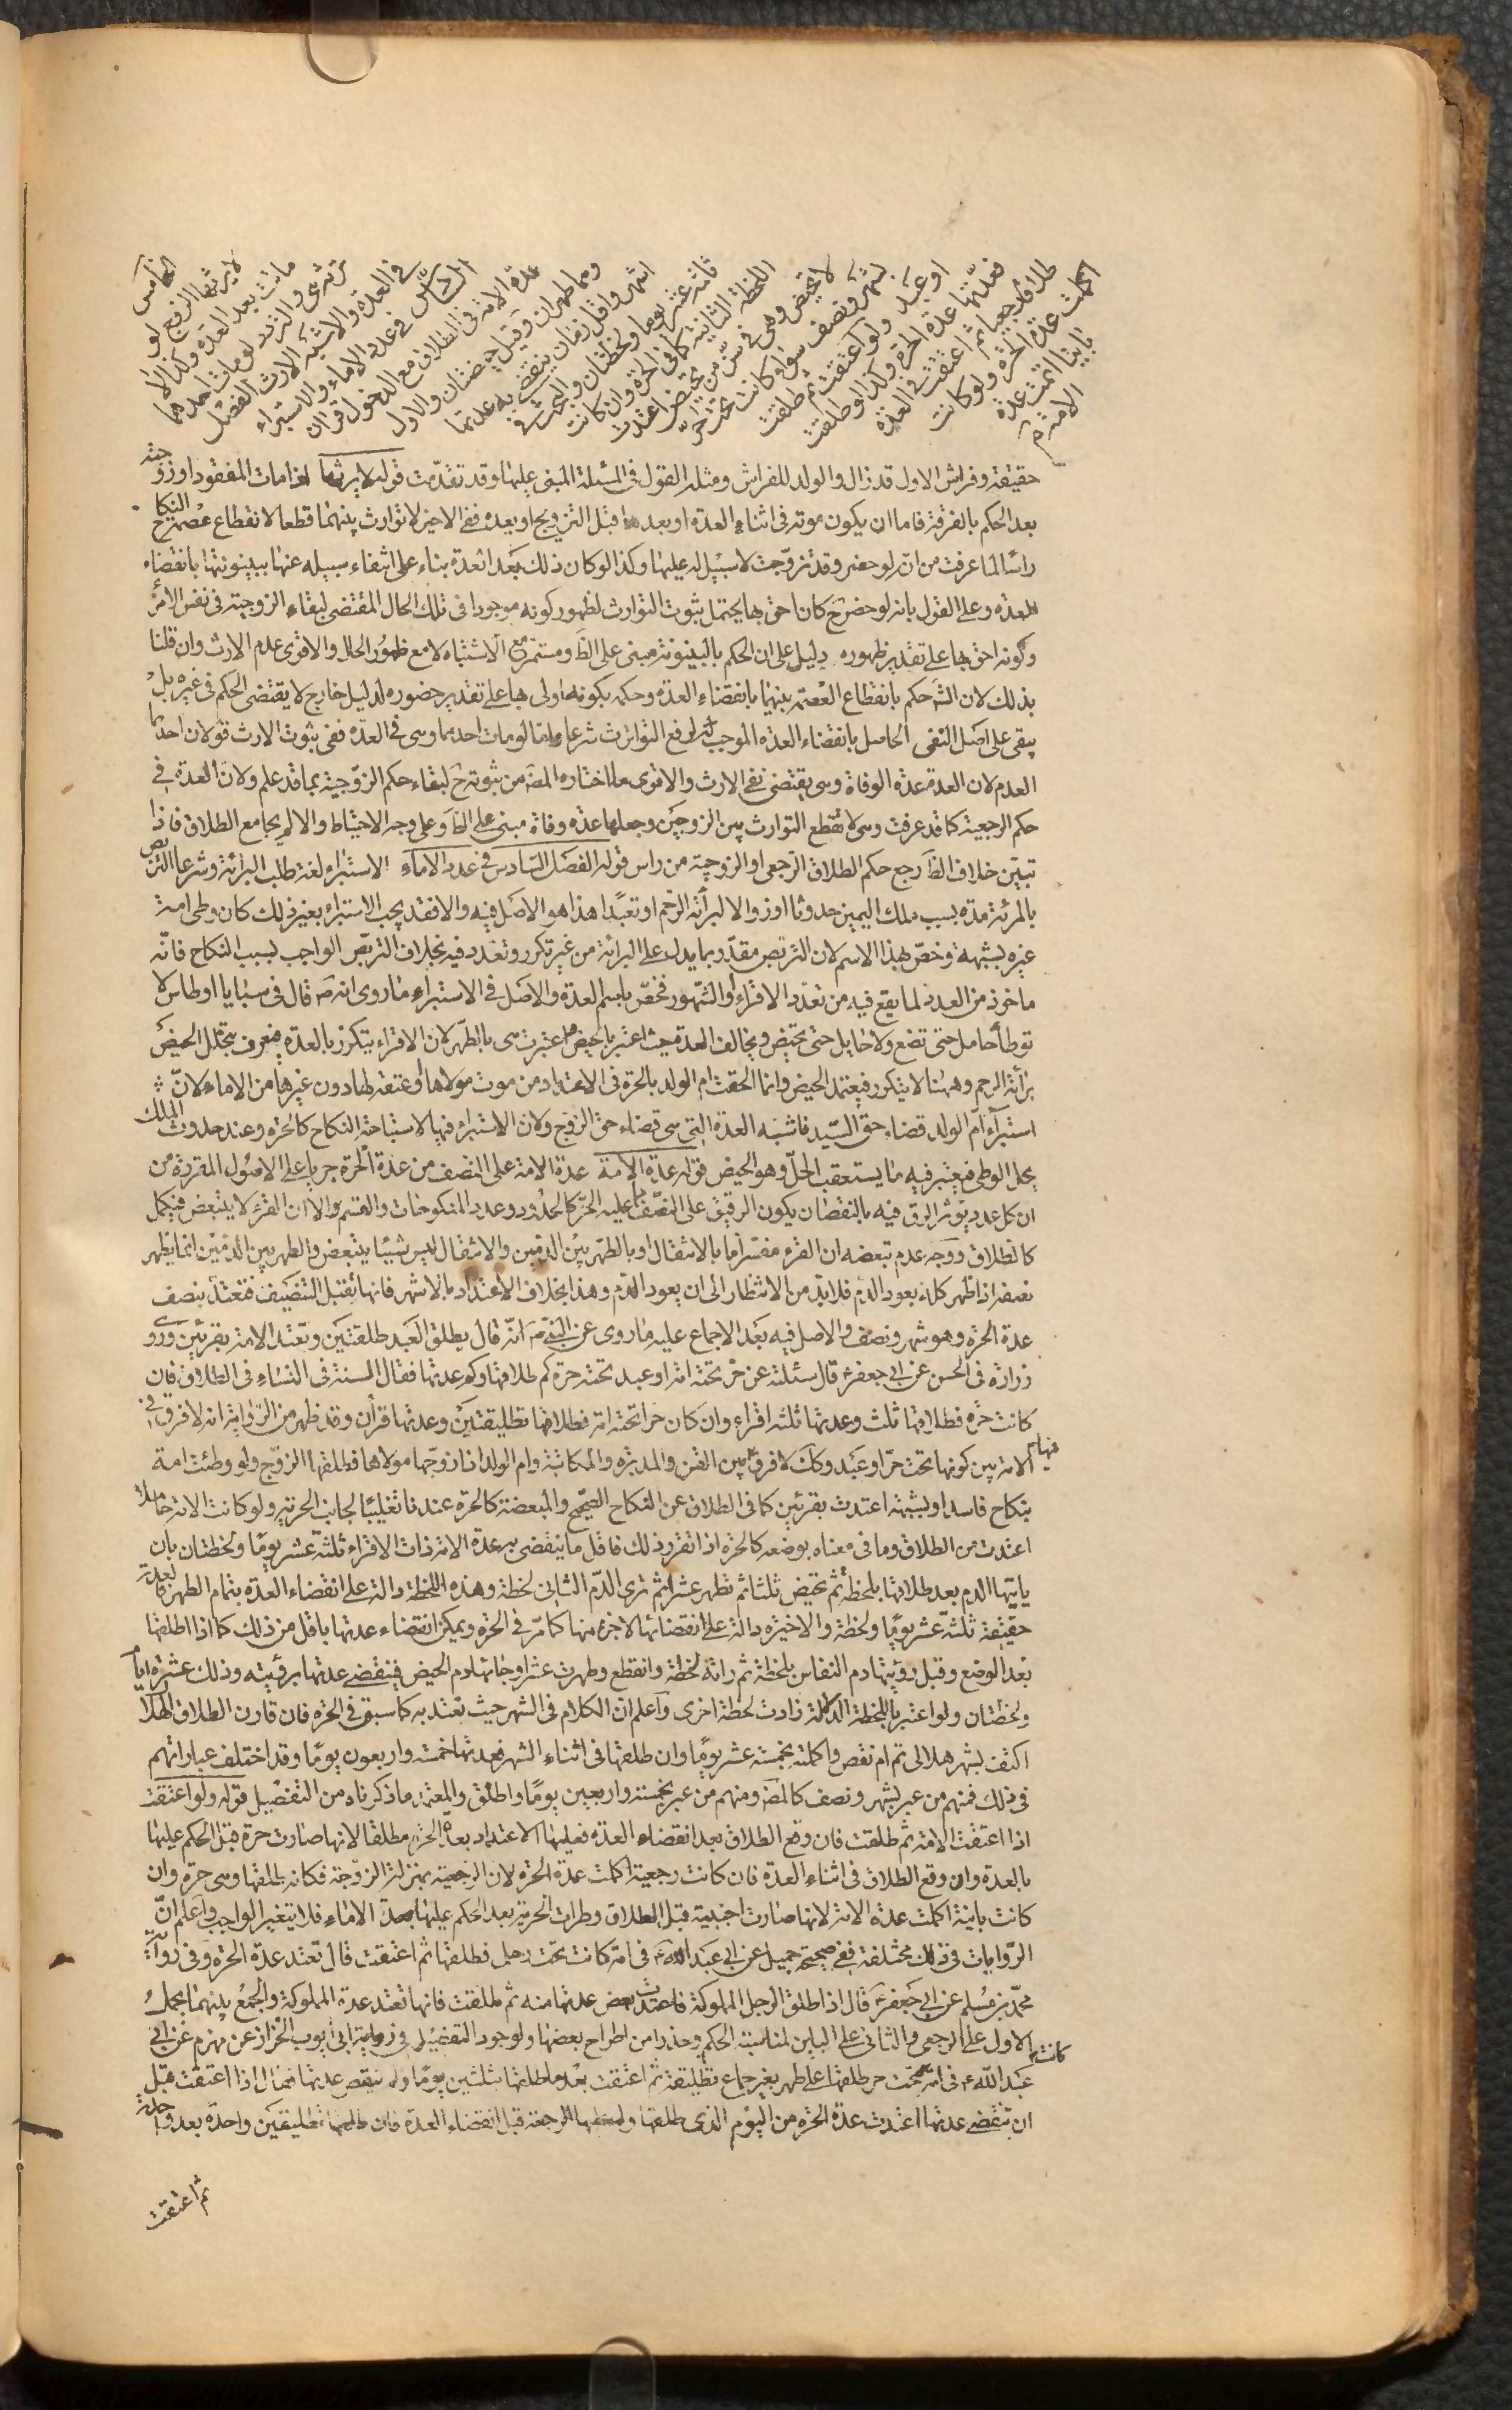 الخامس
لا يرثها الزوج لو
ماتت بعد العدة وكذا لا
ترثه هي والتردد لو مات احدهما
في العدة والاشبه الارث الفصل
السادس في عدد الاماء والاستبراء
عدة الامة في الطلاق مع الدخول قرءان
وهما طهران وقيل حيضتان والاول
اشهر واقل زمان ينقضي به عدتها
ثلثة عشر يوما ولحظتان والبحث في
اللحظة الثانية كما في الحرة وان كانت
لا تحيض وهي في سن من تحيض اعتدت
بشهر ونصف سواء كانت تحت حر
او عبد ولو اعتقت ثم طلقت
فعدتها عدة الحرة وكذا لو طلقت
طلاقا رجعيا ثم اعتقت في العدة
اكملت عدة الحرة ولو كانت
باينا اتمت عدة
الامة م
حقيقة وفراش الاول قد زال والولد للفراش ومثله القول في المسئلة المبنى عليها وقد تقدمت قوله لا يرثها اذا مات المفقود او زوجته
بعد الحكم بالفرقة فاما ان يكون موته في اثناء العدة او بعدها قبل التزويج او بعده ففي الاخير لا توارث بينهما قطعا لانقطاع عصمة النكاح
راسا لما عرفت من انه لو حضر وقد تزوجت لا سبيل له عليها وكذا لو كان ذلك بعد العدة بناء على انتفاء سبيله عنها ببينونتها بانقضاء
العدة وعلى القول بانه لو حضر ح كان احق بها يحتمل ثبوت التوارث لظهور كونه موجودا في تلك الحال المقتضي لبقاء الزوجية في نفس الامر
وكونه احق بها على تقدير ظهوره دليل على ان الحكم بالبينونة مبني على الظ ومستمر مع الاشتباه لا مع ظهور الحال والاقوى عدم الارث وان قلنا
بذلك لان الش حكم بانقطاع العصمة بينهما بانقضاء العدة وحكمه بكونه اولى بها على تقدير حضوره لدليل خارج لا يقتضي الحكم في غيره بل
يبقى على اصل النفي الحاصل بانقضاء العدة الموجب لرفع التوارث شرعا واما لو مات احدهما وهي في العدة ففي ثبوت الارث قولان احدهما
العدم لان العدة عدة الوفاة وهي يقتضي نفي الارث والاقوى ما اختاره المص من ثبوته ح لبقاء حكم الزوجية بما قد علم ولان العدة في
حكم الرجعية كما قد عرفت وهي لا تقطع التوارث بين الزوجين وجعلها عدة وفاة مبني على الظ وعلى وجه الاحتياط والا لم يجامع الطلاق فاذا
تبين خلاف الظ رجع حكم الطلاق الرجعي او الزوجية من راس قوله الفصل السادس في عدد الاماء الاستبراء لغة طلب البرائة وشرعا التربص
بالمرئة مدة بسبب ملك اليمين حدوثا او زوالا لبرأئة الرحم او تعبدا هذا هو الاصل فيه والا فقد يجب الاستبراء بغير ذلك كان وطى امة
غيره بشبهة وخص بهذا الاسم لان التربص مقدر بما يدل على البرائة من غير تكرر وتعدد فيه بخلاف التربص الواجب بسبب النكاح فانه
ماخوذ من العدد لما يقع فيه من تعدد الاقراء او الشهور فخص باسم العدة والاصل في الاستبراء ما روي انه ص قال في سبايا اوطاس لا
توطأ حامل حتى تضع ولا حايل حتى تحيض ويخالف العدة حيث اعتبر بالحيض واعتبرت هي بالطهر لان الاقراء يتكرر بالعدة فيعرف بتخلل الحيض
برأئة الرحم وههنا لا يتكرر فيعتمد الحيض وانما الحقت ام الولد بالحرة في الاعتداد من موت مولاها او عتقه لها دون غيرها من الاماء لان
استبرآء ام الولد قضاء حق السيد فاشبه العدة التي هي قضاء حق الزوج ولان الاستبراء فيها لاستباحة النكاح كالحرة وعند حدوث الملك
يحل الوطى فيعتبر فيه ما يستعقب الحل وهو الحيض قوله عدة الامة عدة الامة على النصف من عدة الحرة جريا على الاصول المقررة من
ان كل عدد يؤثر الرق فيه بالنقصان يكون الرقيق على النصف مما عليه الحر كالحدود وعدد المنكوحات والقسم والا ان القرء لا يتبعض فيكمل
كالطلاق ووجه عدم تبعضه ان القرء مفسر اما بالانتقال او بالطهر بين الدمين والانتقال ليس شيئا يتبعض والطهر بين الدمين انما يظهر
نصفه اذا ظهر كله بعود الدم فلا بد من الانتظار الى ان يعود الدم وهذا بخلاف الاعتداد بالاشهر فانها تقبل التنصيف فتعتد بنصف
عدة الحرة وهو شهر ونصف والاصل فيه بعد الاجماع عليه ما روي عن النبي ص انه قال يطلق العبد طلقتين وتعتد الامة بقرئين وروى
زرارة في الحسن عن ابي جعفر ع قال سئلته عن حر تحته امة او عبد تحته حرة كم طلاقها وكم عدتها فقال السنة في النساء في الطلاق فان
كانت حرة فطلاقها ثلث وعدتها ثلثة اقراء وان كان حر تحته امة فطلاقها تطليقتين وعدتها قرأن وقد ظهر من الرواية انه لا فرق في
الامة بين كونها تحت حر او عبد وكك لا فرق فيها بين القن والمدبرة والمكاتبة وام الولد اذا زوجها مولاها فطلقها الزوج ولو وطئت امة
بنكاح فاسد او بشبهة اعتدت بقرئين كما في الطلاق عن النكاح الصحيح والمبعضة كالحرة عندنا تغليبا لجانب الحرية ولو كانت الامة حاملا
اعتدت من الطلاق وما في معناه بوضعه كالحرة اذا تقرر ذلك فاقل ما ينقضي به عدة الامة ذات الاقراء ثلثة عشر يوما ولحظتان بان
ياتيها الدم بعد طلاقها بلحظة ثم تحيض ثلثا ثم تطهر عشرا ثم ترى الدم الثاني لحظة وهذه اللحظة دالة على انقضاء العدة بتمام الطهر فالعدة
حقيقة ثلثة عشر يوما ولحظة والاخيرة دالة على انقضائها لا جزء منها كما مر في الحرة ويمكن انقضاء عدتها باقل من ذلك كما اذا طلقها
بعد الوضع وقبل رؤيتها دم النفاس بلحظة ثم راته لحظة وانقطع وطهرت عشرا وجائها دم الحيض فينقضي عدتها برؤيته وذلك عشرة ايام
ولحظتان ولو اعتبر باللحظة الدالة زادت لحظة اخرى واعلم ان الكلام في الشهر حيث تعتد به كما سبق في الحرة فان قارن الطلاق الهلال
اكتفت بشهر هلالي تم ام نقص واكملته بخمسة عشر يوما وان طلقها في اثناء الشهر فعدتها خمسة واربعون يوما وقد اختلف عباراتهم
في ذلك فمنهم من عبر بشهر ونصف كالمص ومنهم من عبر بخمسة واربعين يوما واطلق والمعتمد ما ذكرناه من التفصيل قوله ولو اعتقت
اذا اعتقت الامة ثم طلقت فان وقع الطلاق بعد انقضاء العدة فعليها الاعتداد بعدة الحرة مطلقا لانها صارت حرة قبل الحكم عليها
بالعدة وان وقع الطلاق في اثناء العدة فان كانت رجعية اكملت عدة الحرة لان الرجعية بمنزلة الزوجة فكانه طلقها وهي حرة وان
كانت باينة اكملت عدة الامة لانها صارت اجنبية قبل الطلاق وطرات الحرية بعد الحكم عليها بعدة الاماء فلا يتغير الواجب واعلم ان
الروايات في ذلك مختلفة ففي صحيحة جميل عن ابي عبد الله ع في امة كانت تحت رجل فطلقها ثم اعتقت قال تعتد عدة الحرة وفي رواية
محمد بن مسلم عن ابي جعفر ع قال اذا طلق الرجل المملوكة فاعتدت بعض عدتها منه ثم طلقت فانها تعتد عدة المملوكة والجمع بينهما بحمل
الاول على الرجعي والثاني على الباين لمناسبة الحكم وحذرا من اطراح بعضها ولوجود التفصيل في رواية ابي ايوب الخراز عن مهزم عن ابي
عبد الله ع في امة كانت تحت حر طلقها على طهر بغير جماع تطليقة ثم اعتقت بعد ما طلقها بثلثين يوما ولم تنقض عدتها فقال اذا اعتقت قبل
ان تنقضي عدتها اعتدت عدة الحرة من اليوم الذي طلقها وله عليها الرجعة قبل انقضاء العدة فان طلقها تطليقتين واحدة بعد واحدة
ثم اعتقت